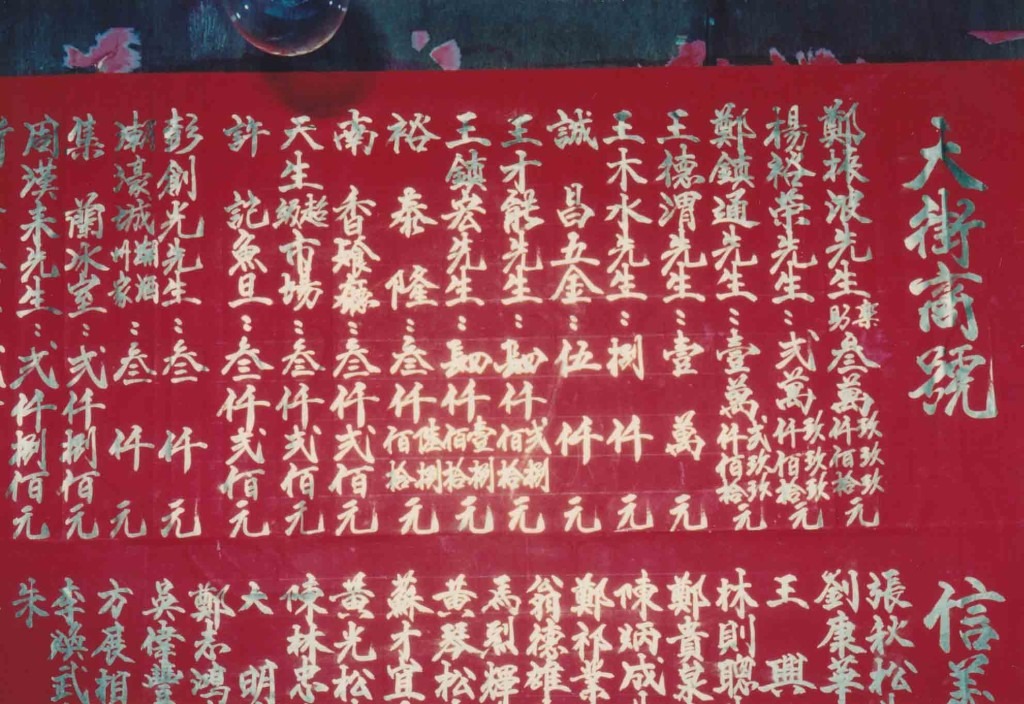 大街商號
鄭振波先生樂助叁萬玖仟玖佰玖拾元
楊裕榮先生：弍萬玖仟玖佰玖拾元
鄭鎮通先生：壹萬弍仟玖佰玖拾元
王德渭先生：壹萬元
王木水先生：捌仟元
誠昌五金：伍仟元
王才能先生：肆仟弍佰捌拾元
王鎮宏先生：肆仟壹佰捌拾元
裕泰隆：叁仟陸佰捌拾元
南香：叁仟弍佰元
天生超級市場：叁仟弍佰元
許記魚旦：叁仟弍佰元
彭創光先生：叁仟元
潮濠城潮州酒家：叁仟元
集蘭冰室：弍仟捌佰元
周漢未先生：弍仟捌佰元
信義
張秋松
劉康華
王興
林則聰
鄭貴泉
陳炳成
鄭祁業
翁德雄
馬烈輝
黃琴松
蘇才宜
黃光松
陳林忠
大明
鄭志鴻
吳偉豐
方展相
李煥武
朱